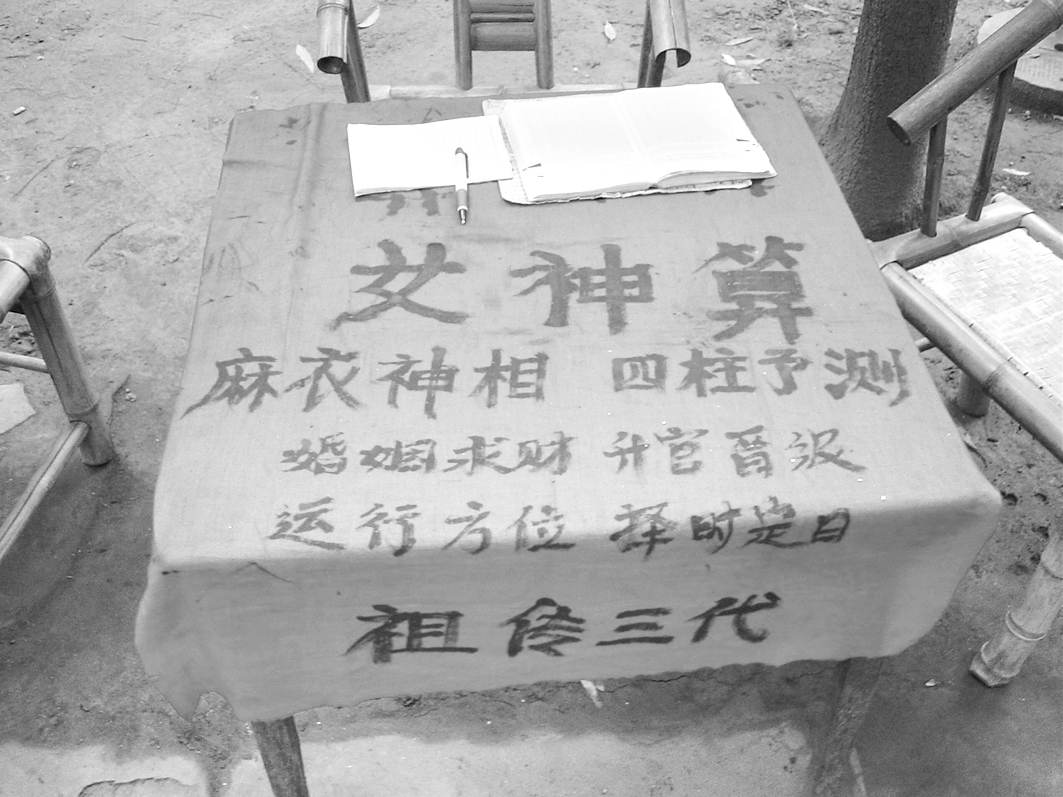 女神算
麻衣神相 四柱予测
婚姻求财 升官晋级
运行方位 择时定日
祖传三代